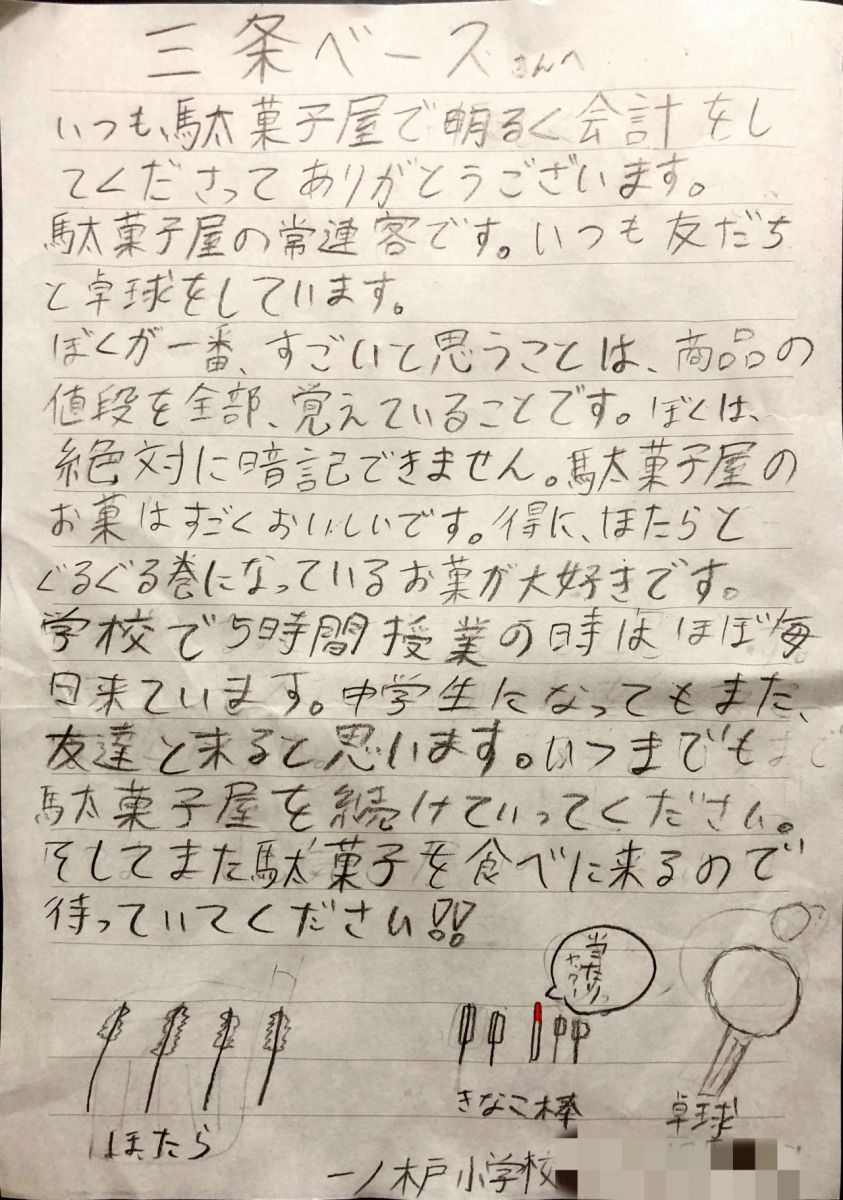 三条ベースさんへ
いつも、駄菓子屋で明るく会計をし
てくださってありがとうございます。
駄菓子屋の常連客です。いつも友だち
と卓球をしています。
ぼくが一番、すごいと思うことは、商品の
値段を全部、覚えていることです。ぼくは、
絶対に暗記できません。駄菓子屋の
お菓はすごくおいしいです。得に、ほたらと
ぐるぐる巻になっているお菓が大好きです。
学校で5時間授業の時はほぼ毎
日来ています。中学生になってもまた、
友達と来ると思います。いつまでも
駄菓子屋を続けていってください。
そしてまた駄菓子を食べに来るので
待っていてください!!
当たり
ヤッター
ほたら
きなこ棒
卓球
一ノ木戸小学校